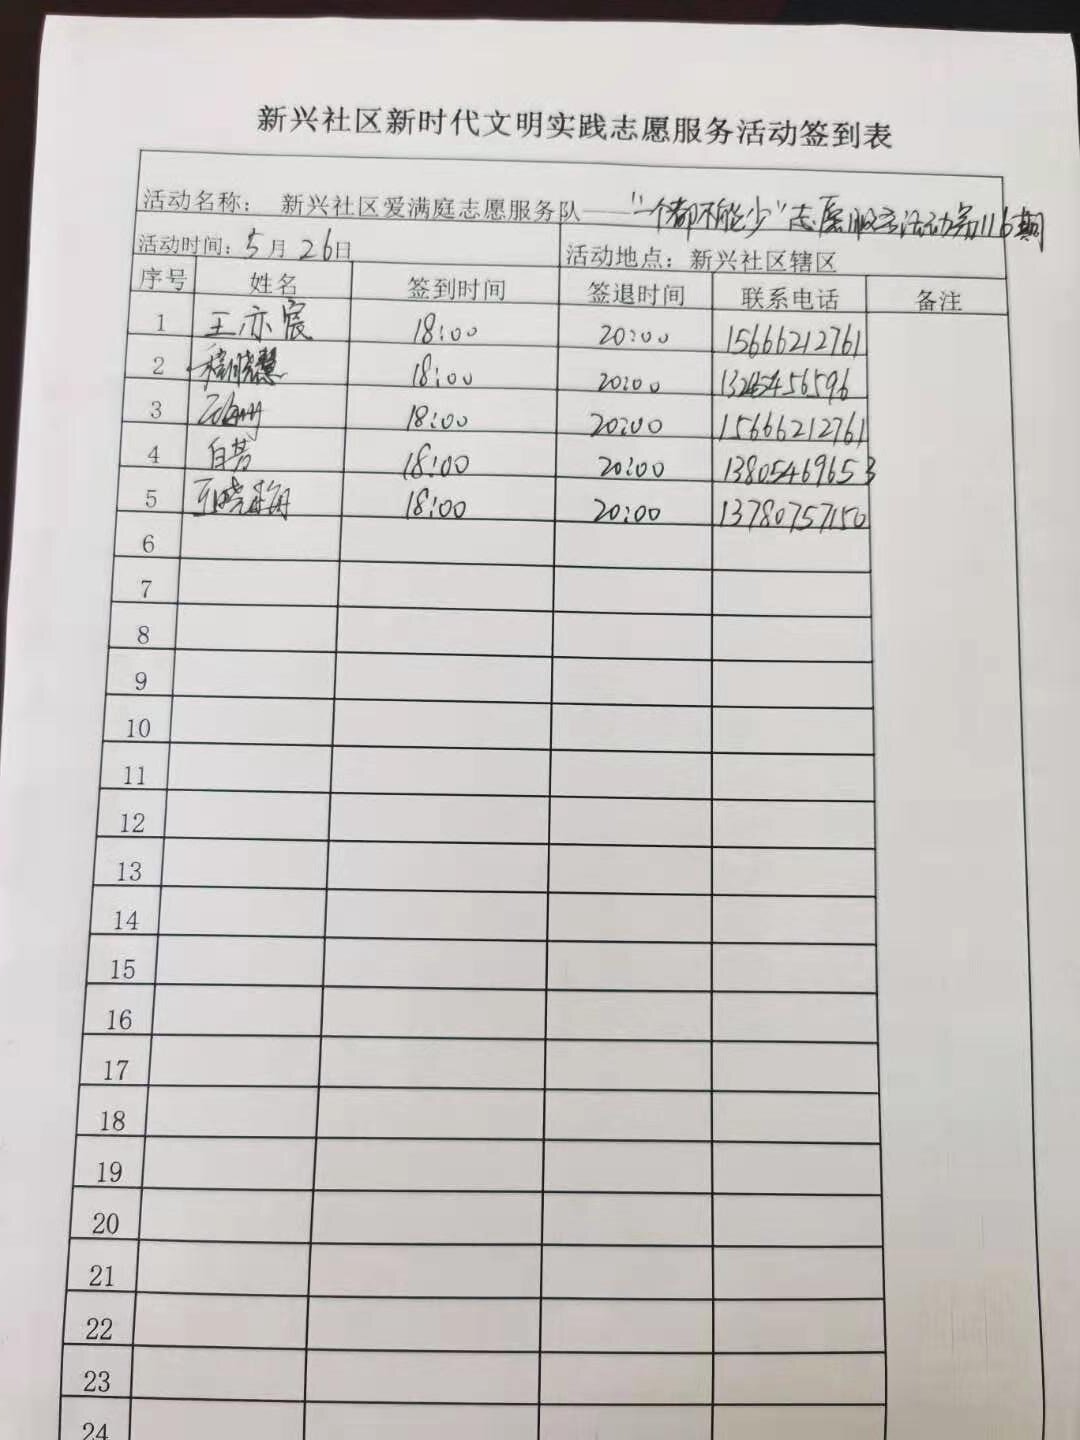 新兴社区新时代文明实践志愿服务活动签到表
活动名称： 新兴社区爱满庭志愿服务队——“一个都不能少”志愿服务活动第116期
活动时间：5月26日 活动地点：新兴社区辖区
序号 姓名 签到时间 签退时间 联系电话 备注
1 王亦宸 18:00 20:00 15666212761
2 18:00 20:00
3 18:00 20:00 15666212761
4 白芳 18:00 20:00 13805469653
5 18:00 20:00 13780757150
6
7
8
9
10
11
12
13
14
15
16
17
18
19
20
21
22
23
24